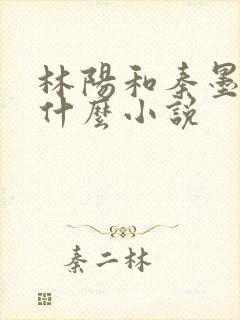 林陽和秦墨
什麼小説
秦二林